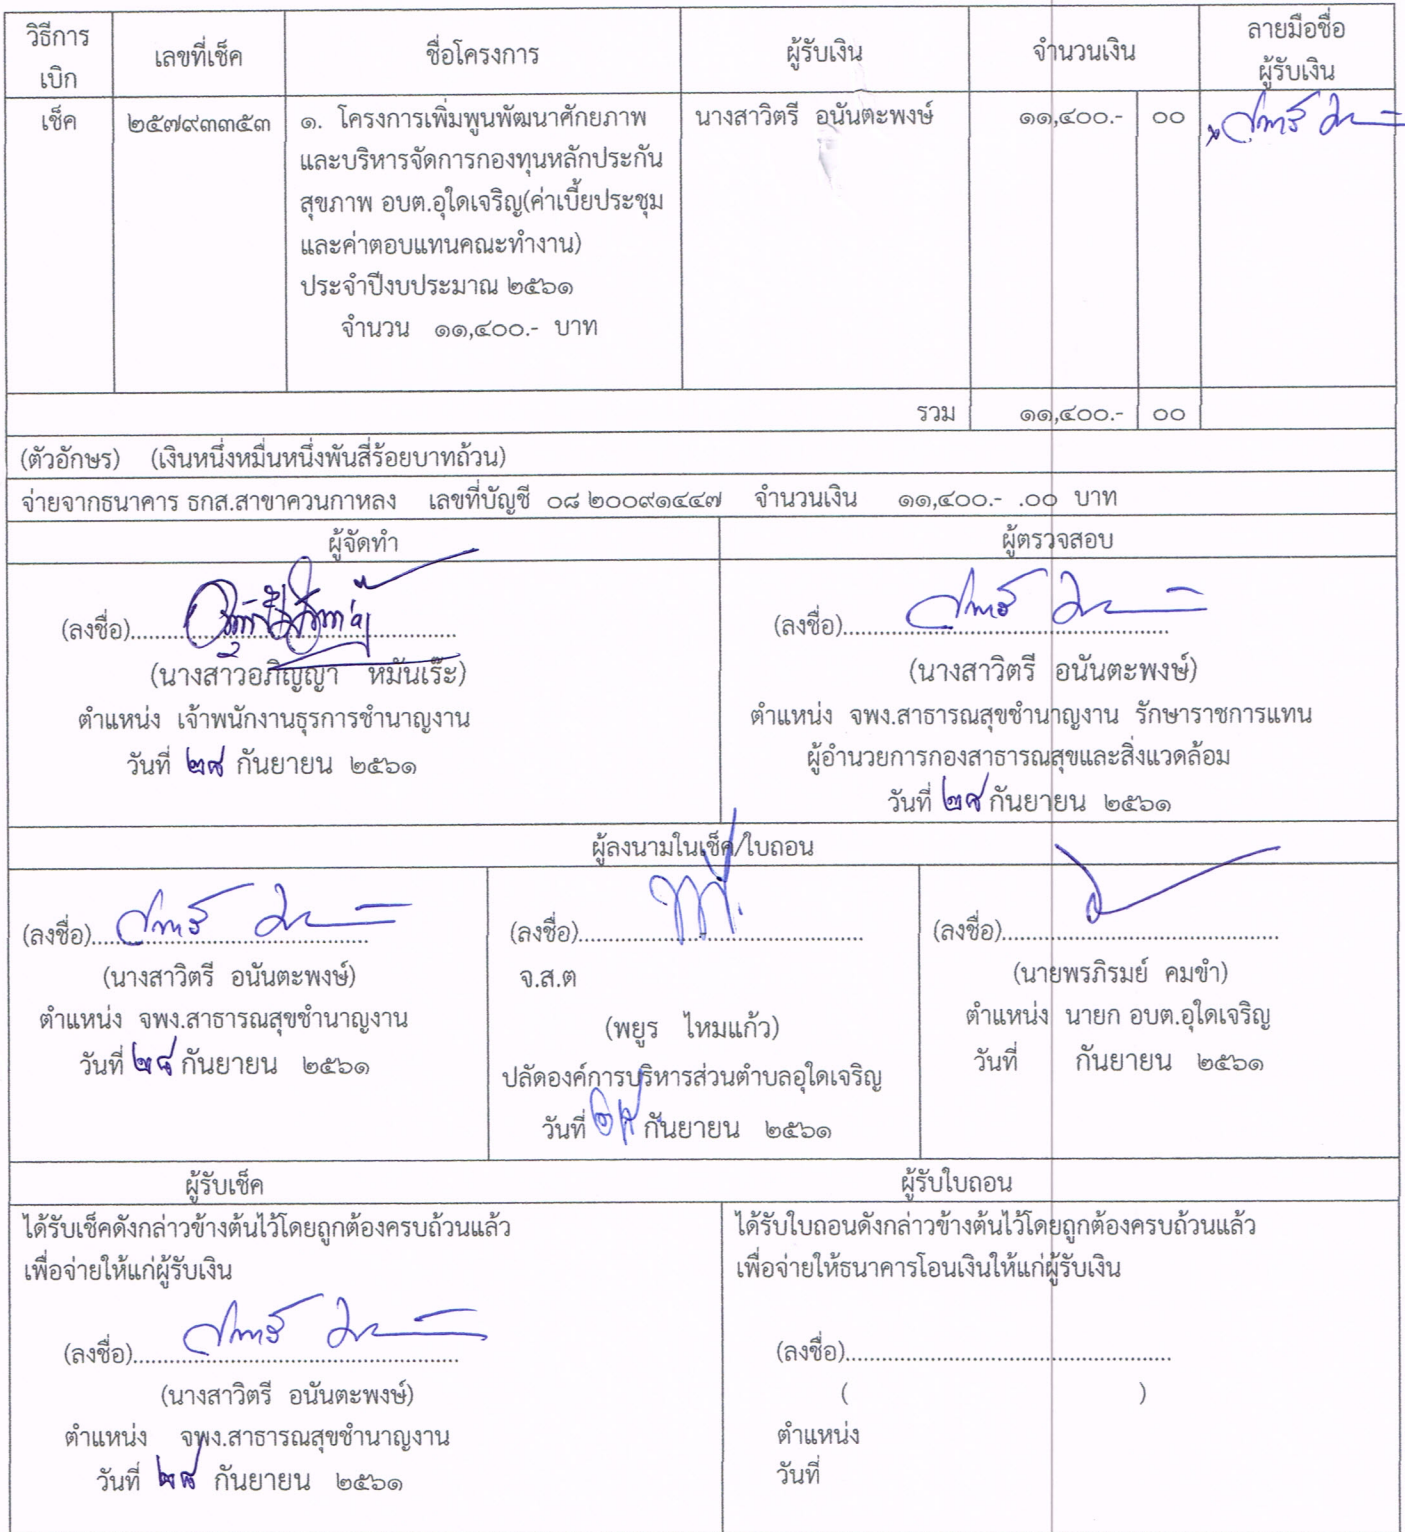 วิธีการ
เบิก
เลขที่เช็ค
ชื่อโครงการ
ผู้รับเงิน
จำนวนเงิน
ลายมือชื่อ
ผู้รับเงิน
เช็ค
๒๕๗๙๓๓๕๓
๑. โครงการเพิ่มพูนพัฒนาศักยภาพ
และบริหารจัดการกองทุนหลักประกัน
สุขภาพ อบต.อุใดเจริญ(ค่าเบี้ยประชุม
และค่าตอบแทนคณะทำงาน)
ประจำปีงบประมาณ ๒๕๖๑
จำนวน ๑๑,๔๐๐.- บาท
นางสาวิตรี อนันตะพงษ์
๑๑,๔๐๐.- ๐๐
รวม ๑๑,๔๐๐.- ๐๐
(ตัวอักษร) (เงินหนึ่งหมื่นหนึ่งพันสี่ร้อยบาทถ้วน)
จ่ายจากธนาคาร ธกส.สาขาควนกาหลง เลขที่บัญชี ๐๘ ๒๐๐๙๑๔๔๗ จำนวนเงิน ๑๑,๔๐๐.- .๐๐ บาท
ผู้จัดทำ
(ลงชื่อ)..........................................
(นางสาวอภิญญา หมันเร๊ะ)
ตำแหน่ง เจ้าพนักงานธุรการชำนาญงาน
วันที่ ๒๘ กันยายน ๒๕๖๑
ผู้ตรวจสอบ
(ลงชื่อ)..........................................
(นางสาวิตรี อนันตะพงษ์)
ตำแหน่ง จพง.สาธารณสุขชำนาญงาน รักษาราชการแทน
ผู้อำนวยการกองสาธารณสุขและสิ่งแวดล้อม
วันที่ ๒๘ กันยายน ๒๕๖๑
ผู้ลงนามในเช็ค/ใบถอน
(ลงชื่อ)..........................................
(นางสาวิตรี อนันตะพงษ์)
ตำแหน่ง จพง.สาธารณสุขชำนาญงาน
วันที่ ๒๘ กันยายน ๒๕๖๑
(ลงชื่อ)..........................................
จ.ส.ต
(พยูร ไหมแก้ว)
ปลัดองค์การบริหารส่วนตำบลอุใดเจริญ
วันที่ กันยายน ๒๕๖๑
(ลงชื่อ)..........................................
(นายพรภิรมย์ คมขำ)
ตำแหน่ง นายก อบต.อุใดเจริญ
วันที่ กันยายน ๒๕๖๑
ผู้รับเช็ค
ได้รับเช็คดังกล่าวข้างต้นไว้โดยถูกต้องครบถ้วนแล้ว
เพื่อจ่ายให้แก่ผู้รับเงิน
(ลงชื่อ)..........................................
(นางสาวิตรี อนันตะพงษ์)
ตำแหน่ง จพง.สาธารณสุขชำนาญงาน
วันที่ ๒๘ กันยายน ๒๕๖๑
ผู้รับใบถอน
ได้รับใบถอนดังกล่าวข้างต้นไว้โดยถูกต้องครบถ้วนแล้ว
เพื่อจ่ายให้ธนาคารโอนเงินให้แก่ผู้รับเงิน
(ลงชื่อ)..........................................
( )
ตำแหน่ง
วันที่